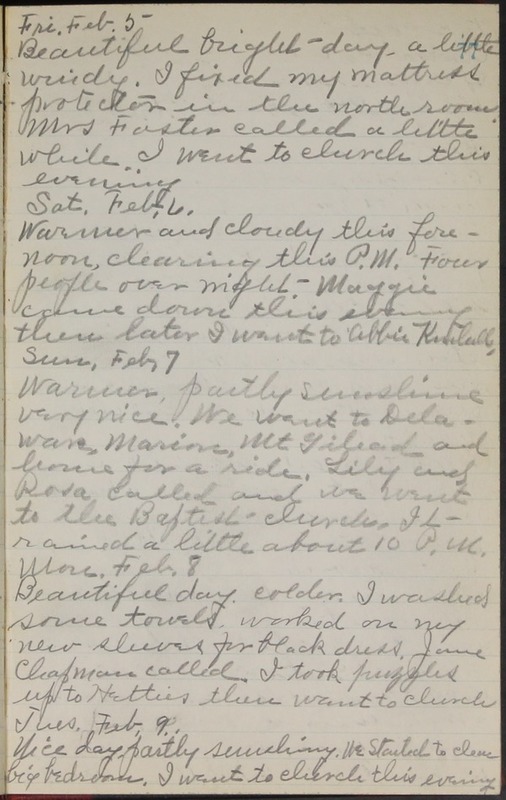 Fri. Feb. 5
Beautiful bright day a little
windy. I fixed my mattress
protector in the north room
Mrs Foster called a little
while. I went to church this
evening
Sat. Feb. 6.
Warmer and cloudy this fore-
noon, clearing this P.M. Four
people over night - Maggie
came down this evening
then later I went to Abbie Kimball,
Sun, Feb 7
Warmer, partly sunshine
very nice. We went to Dela-
ware, Marion, Mt Gilead and
home for a ride. Lily and
Rosa called and we went
to the Baptist church. It
rained a little about 10 P.M.
Mon. Feb. 8
Beautiful day. colder. I washed
some towels, worked on my
new sleeves for black dress. Jane
Chapman called. I took puzzles
up to Hetties then went to church
Tues. Feb. 9.
Nice day partly sunshiny. We Started to clean
big bedroom. I went to church this evening